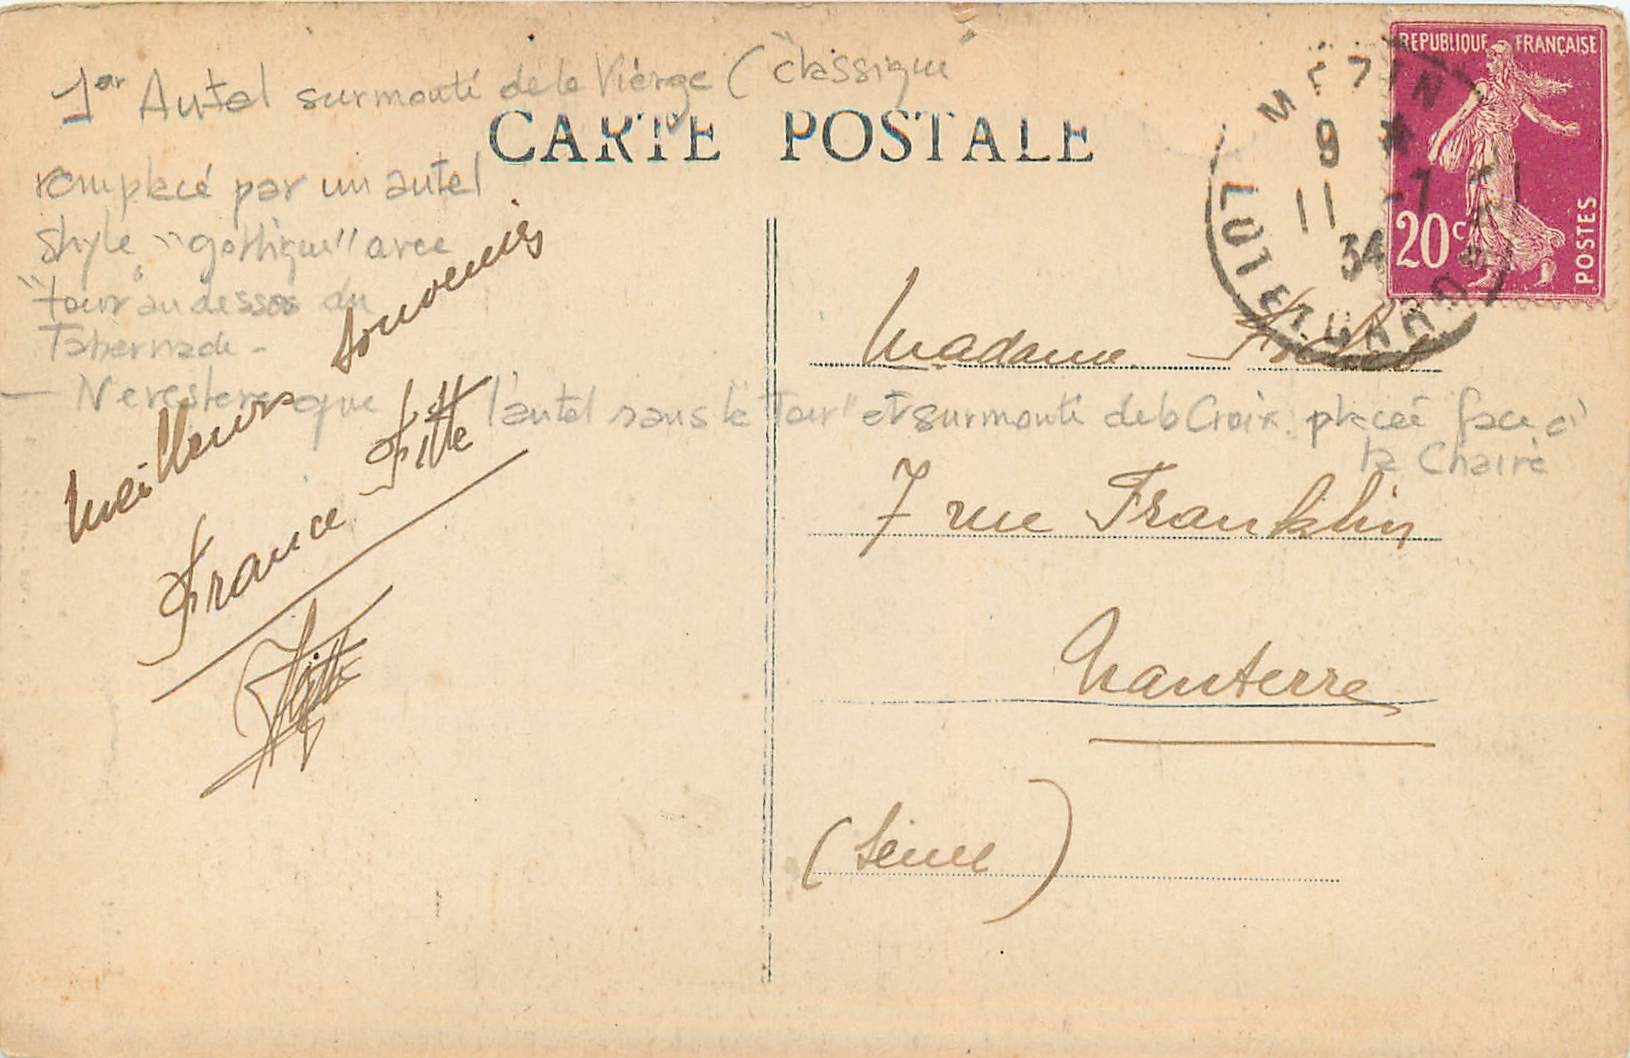 1er Autel surmonté de la Vierge ("classique"
CARTE POSTALE
remplacé par un autel
style "gothique" avec
"tour" au dessos du
Tabernacle -
- Ne restera que l'autel sans la "Tour" et surmonté de la Croix placée face à
la Chaire
Meilleurs souvenirs
France Fitte
Fitte
REPUBLIQUE FRANÇAISE
20c
POSTES
MEZIN
9 *
11 -7
34
LOT ET GARONNE
Madame
7 rue Franklin
Nanterre
(Seine)